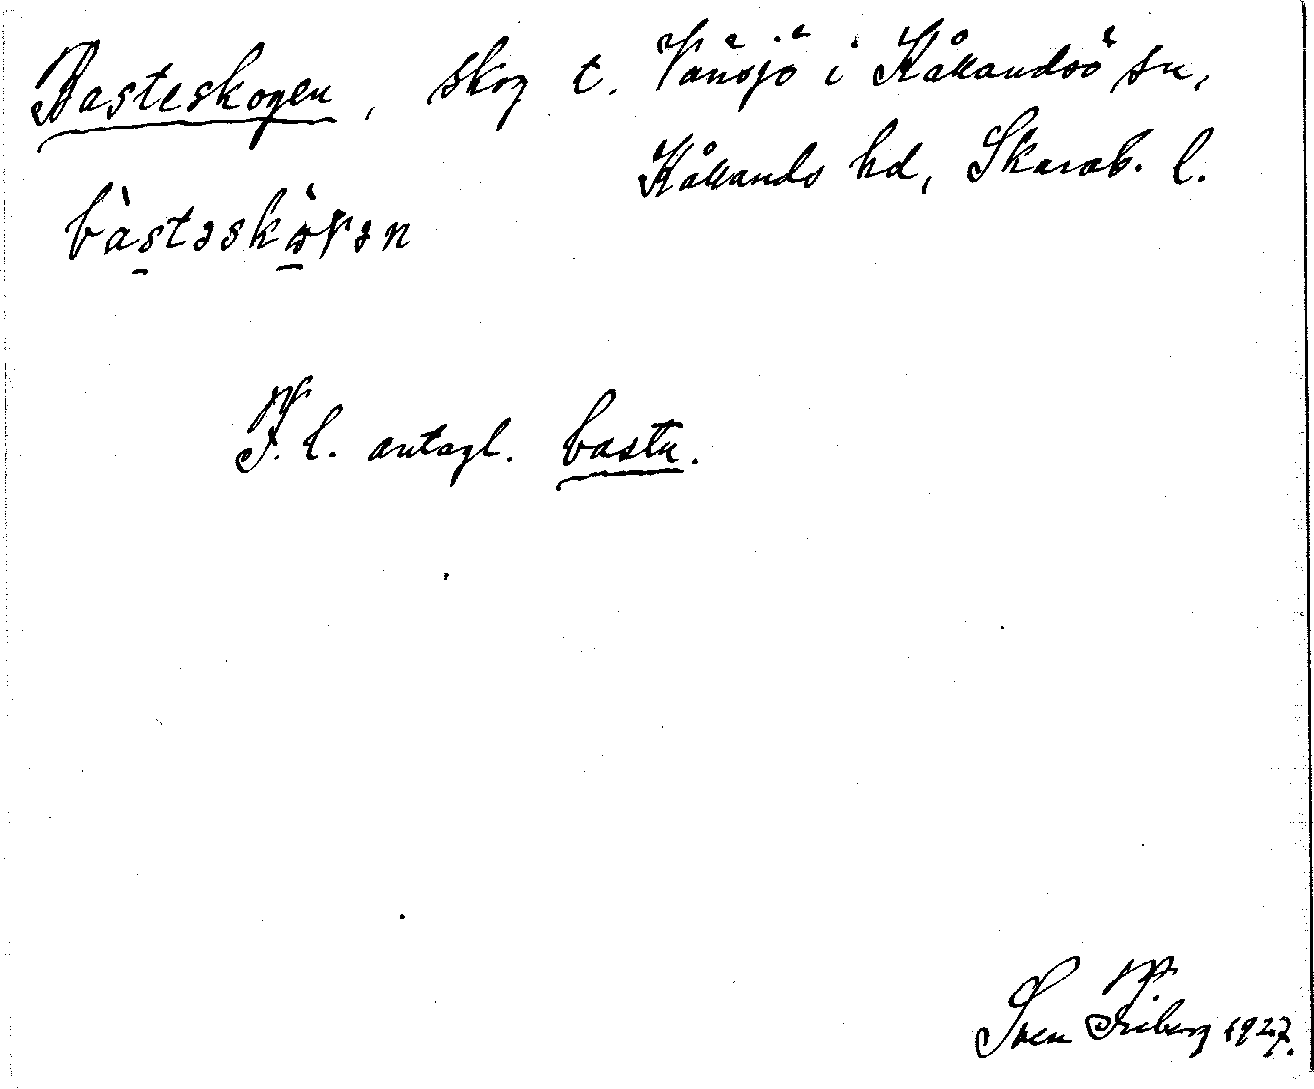 Basteskogen, skog t. Vänsjö i Kållandsö sn,
Kållands hd, Skarab. l.
bàstəskòɤən
F. l. antagl. bastu.
Sven Friberg 1927.